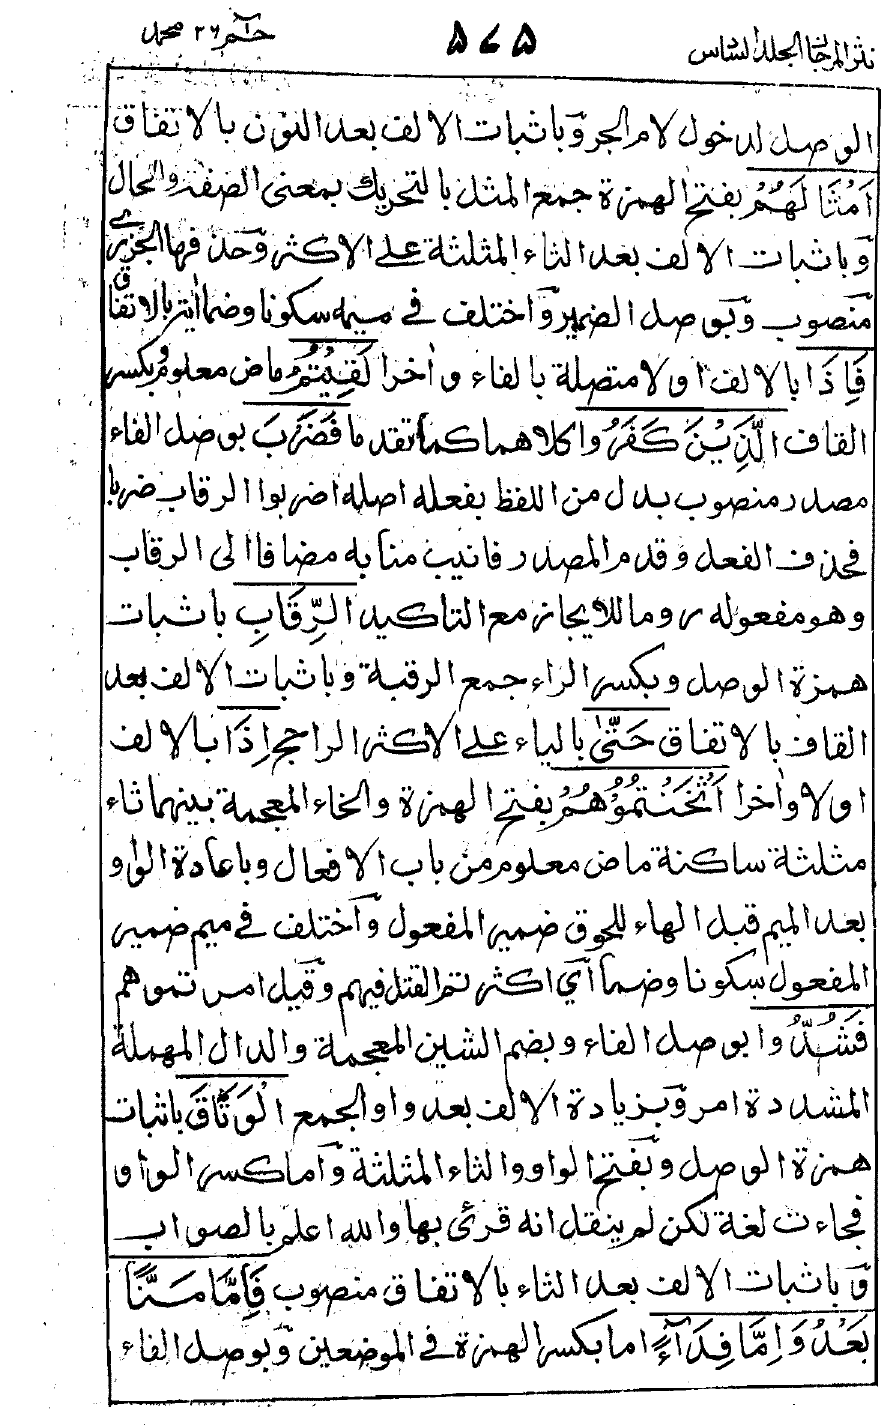 نثر المرجان الجلد السادس ۵۷۵ حٰم ۲۶ محمد
الوصل لدخول لام الجر وباثبات الالف بعد النون بالاتفاق
اَمْثَالَهُمْ بفتح الهمزة جمع المثل بالتحريك بمعنى الصفة والحال
وباثبات الالف بعد الثاء المثلثة على الاكثر وحذفها الجزري
منصوب وبوصل الضمير واختلف في ميمه سكونا وضما ايتر بالاتفاق
فَاِذَا بالالف اولا متصلة بالفاء واٰخرا لَقِيْتُمُ ماض معلوم وبكسر
القاف الَّذِيْنَ كَفَرُوا كلاهما كما تقدما فَضَرْبَ بوصل الفاء
مصدر منصوب بدل من اللفظ بفعله اصله اضربوا الرقاب ضربا
فحذف الفعل وقدم المصدر فانيب منابه مضافا الى الرقاب
وهو مفعوله روما للايجاز مع التاكيد الرِّقَابِ باثبات
همزة الوصل وبكسر الراء جمع الرقبة وباثبات الالف بعد
القاف بالاتفاق حَتّٰى بالياء على الاكثر الراجح اِذَا بالالف
اولا واٰخرا اَثْخَنْتُمُوْهُمْ بفتح الهمزة والخاء المعجمة بينهما ثاء
مثلثة ساكنة ماض معلوم من باب الافعال وباعادة الواو
بعد الميم قبل الهاء للحوق ضمير المفعول واختلف في ميم ضمير
المفعول سكونا وضما اي اكثرتم القتل فيهم وقيل اسرتموهم
فَشُدُّوا بوصل الفاء وبضم الشين المعجمة والدال المهملة
المشددة امر وبزيادة الالف بعد واو الجمع الْوَثَاقَ باثبات
همزة الوصل وبفتح الواو والثاء المثلثة واما كسر الواو
فجاءت لغة لكن لم ينقل انه قرئ بها والله اعلم بالصواب
وباثبات الالف بعد الثاء بالاتفاق منصوب فَاِمَّا مَنًّا
بَعْدُ وَاِمَّا فِدَآءً اما بكسر الهمزة في الموضعين وبوصل الفاء